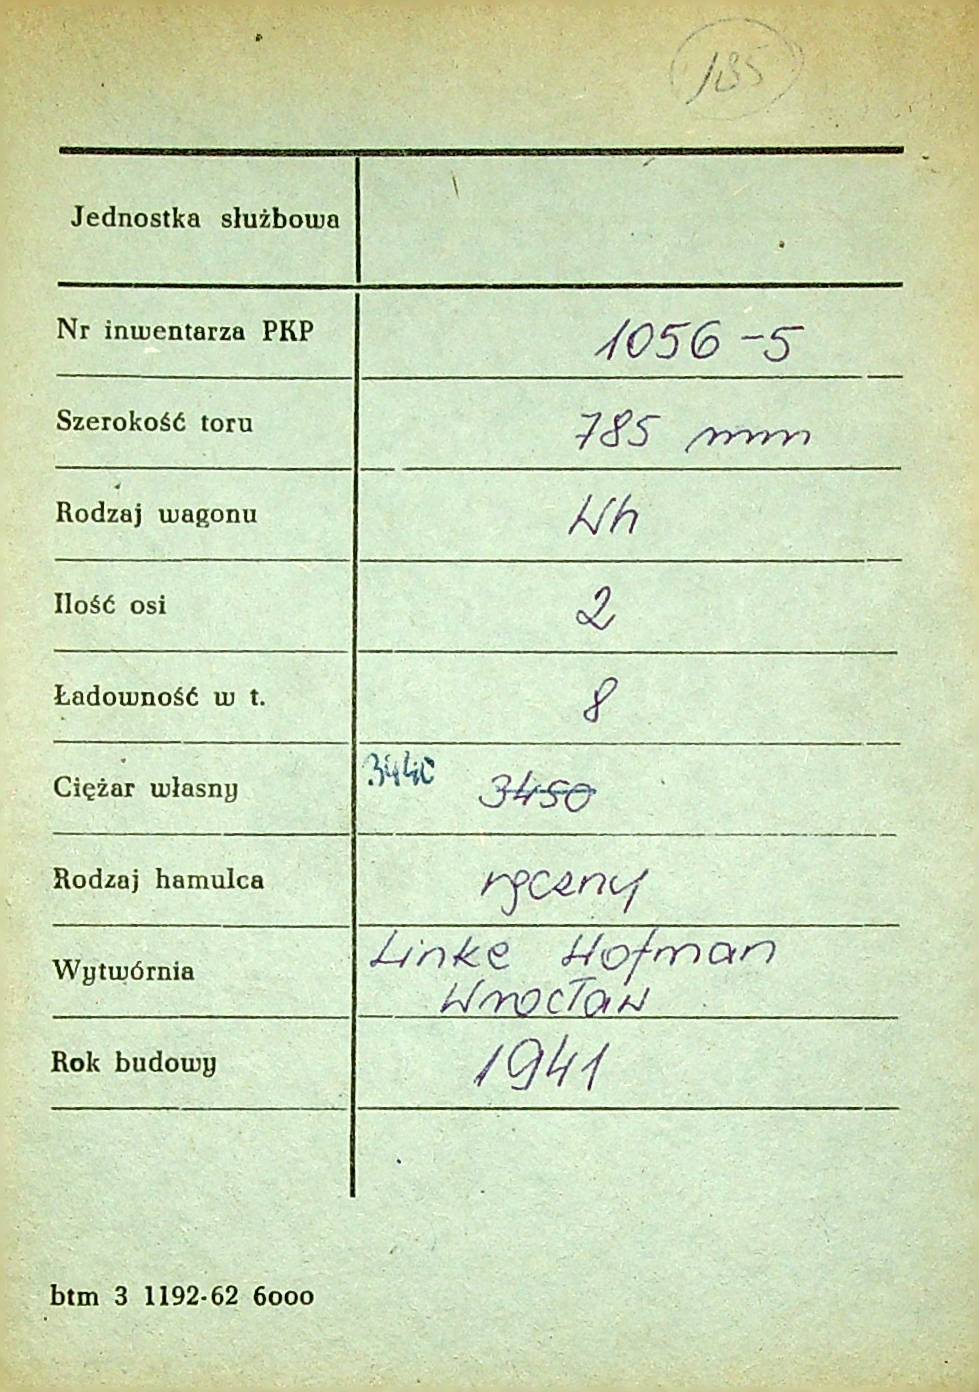 185
Jednostka służbowa
Nr inwentarza PKP 1056-5
Szerokość toru 785 mm
Rodzaj wagonu Wh
Ilość osi 2
Ładowność w t. 8
Ciężar własny 3440 3450
Rodzaj hamulca ręczny
Wytwórnia Linke Hofman
Wrocław
Rok budowy 1941
btm 3 1192-62 6000